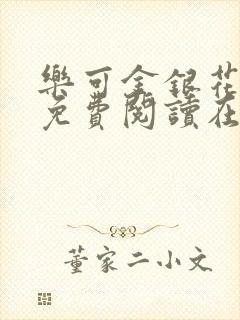 樂可金銀花
免費閱讀在
董家二小文